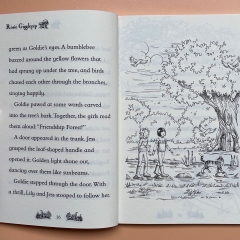 Rosie Gigglepip
green as Goldie's eyes. A bumblebee
buzzed around the yellow flowers that
had sprung up under the tree, and birds
chased each other through the branches,
singing happily.
Goldie pawed at some words carved
into the tree's bark. Together, the girls read
them aloud "Friendship Forest!"
A door appeared in the trunk. Jess
grasped the leaf-shaped handle and
opened it. Golden light shone out,
dancing over them like sunbeams.
Goldie stepped through the door. With
a thrill, Lily and Jess stooped to follow her
10